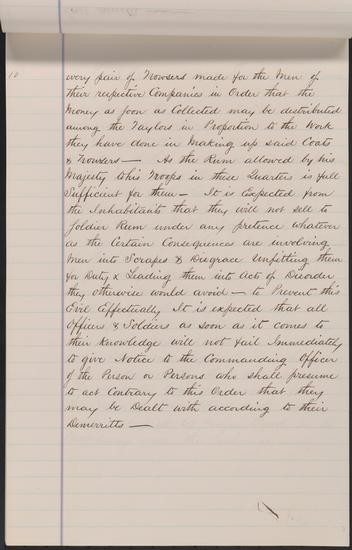 10
every pair of Trowsers made for the Men of
their respective Companies in Order that the
Money as soon as Collected may be distributed
among the Taylors in Proportion to the Work
they have done in Making up said Coats
& Trowsers — As the Rum allowed by his
Majesty to his Troops in these Quarters is full
Sufficient for them — It is Expected from
the Inhabitants that they will not sell to
Soldier Rum under any pretence whatever
as the Certain Consequences are involving
Men into Scrapes & Disgrace Unfitting them
for Duty & Leading them into Acts of Disorder
they otherwise would avoid — to Prevent this
Evil Effectually It is expected that all
Officers & Soldiers as soon as it comes to
their Knowledge will not fail Immediately
to give Notice to the Commanding Officer
of the Person or Persons who shall presume
to act Contrary to this Order that they
may be Dealt with according to their
Demerritts —